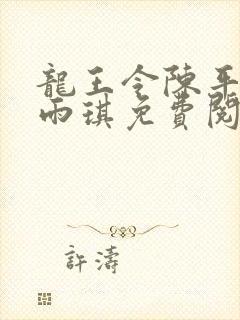 龍王令陳平
雨琪免費閱
許濤